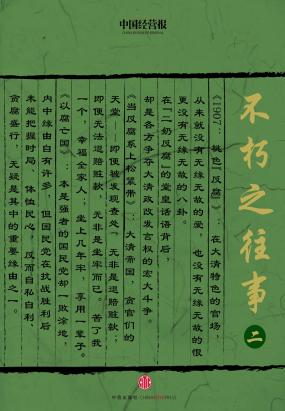 中国经营报
CHINA BUSINESS JOURNAL
不朽之往事
二
《1907：桃色「反腐」》，在大清特色的官场，
从来就没有无缘无故的爱，也没有无缘无故的恨
更没有无缘无故的八卦。
在『二奶反腐』的堂皇话语背后，
却是各方争夺大清政改发言权的宏大斗争。
《当反腐系上松紧带》：大清帝国，贪官们的
天堂——即便被发现查处，无非是退赔赃款；
即便无法退赔赃款，无非是坐牢而已。苦了我
一个，幸福全家人；坐上几年牢，享用一辈子。
《以腐亡国》：本是强者的国民党却一败涂地，
内中缘由自有许多，但国民党在抗战胜利后
未能把握时局、体恤民心，反而自私自利、
贪腐盛行，无疑是其中的重要缘由之一。
中信出版社·CHINA CITIC PRESS